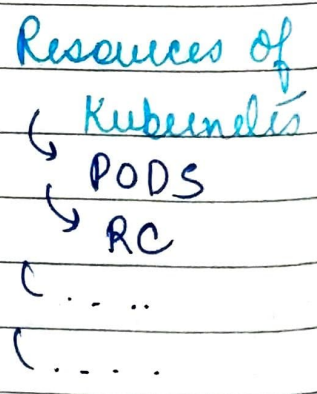 Resources of
Kubernetes
PODS
RC
. . . .
. . . .